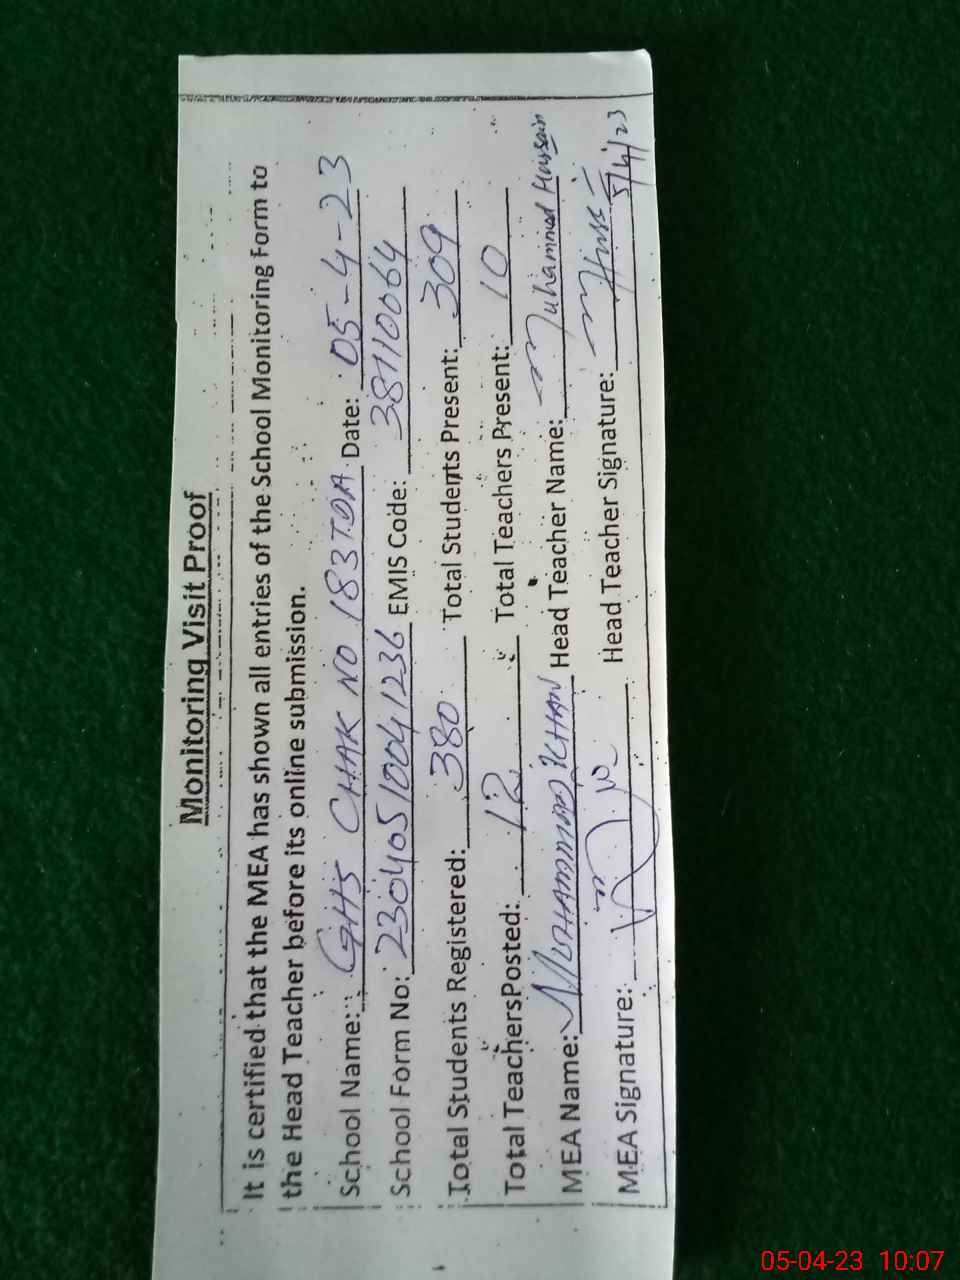 Monitoring Visit Proof
It is certified that the MEA has shown all entries of the School Monitoring Form to
the Head Teacher before its online submission.
School Name: GHS CHAK NO 183TDA Date: 05-4-23
School Form No: 23040510041236 EMIS Code: 38110064
Total Students Registered: 380 Total Students Present: 309
Total Teachers Posted: 12 Total Teachers Present: 10
MEA Name: MUHAMMAD KHAN Head Teacher Name: Muhammad Hussain
MEA Signature: Head Teacher Signature:
5/4/23
05-04-23 10:07